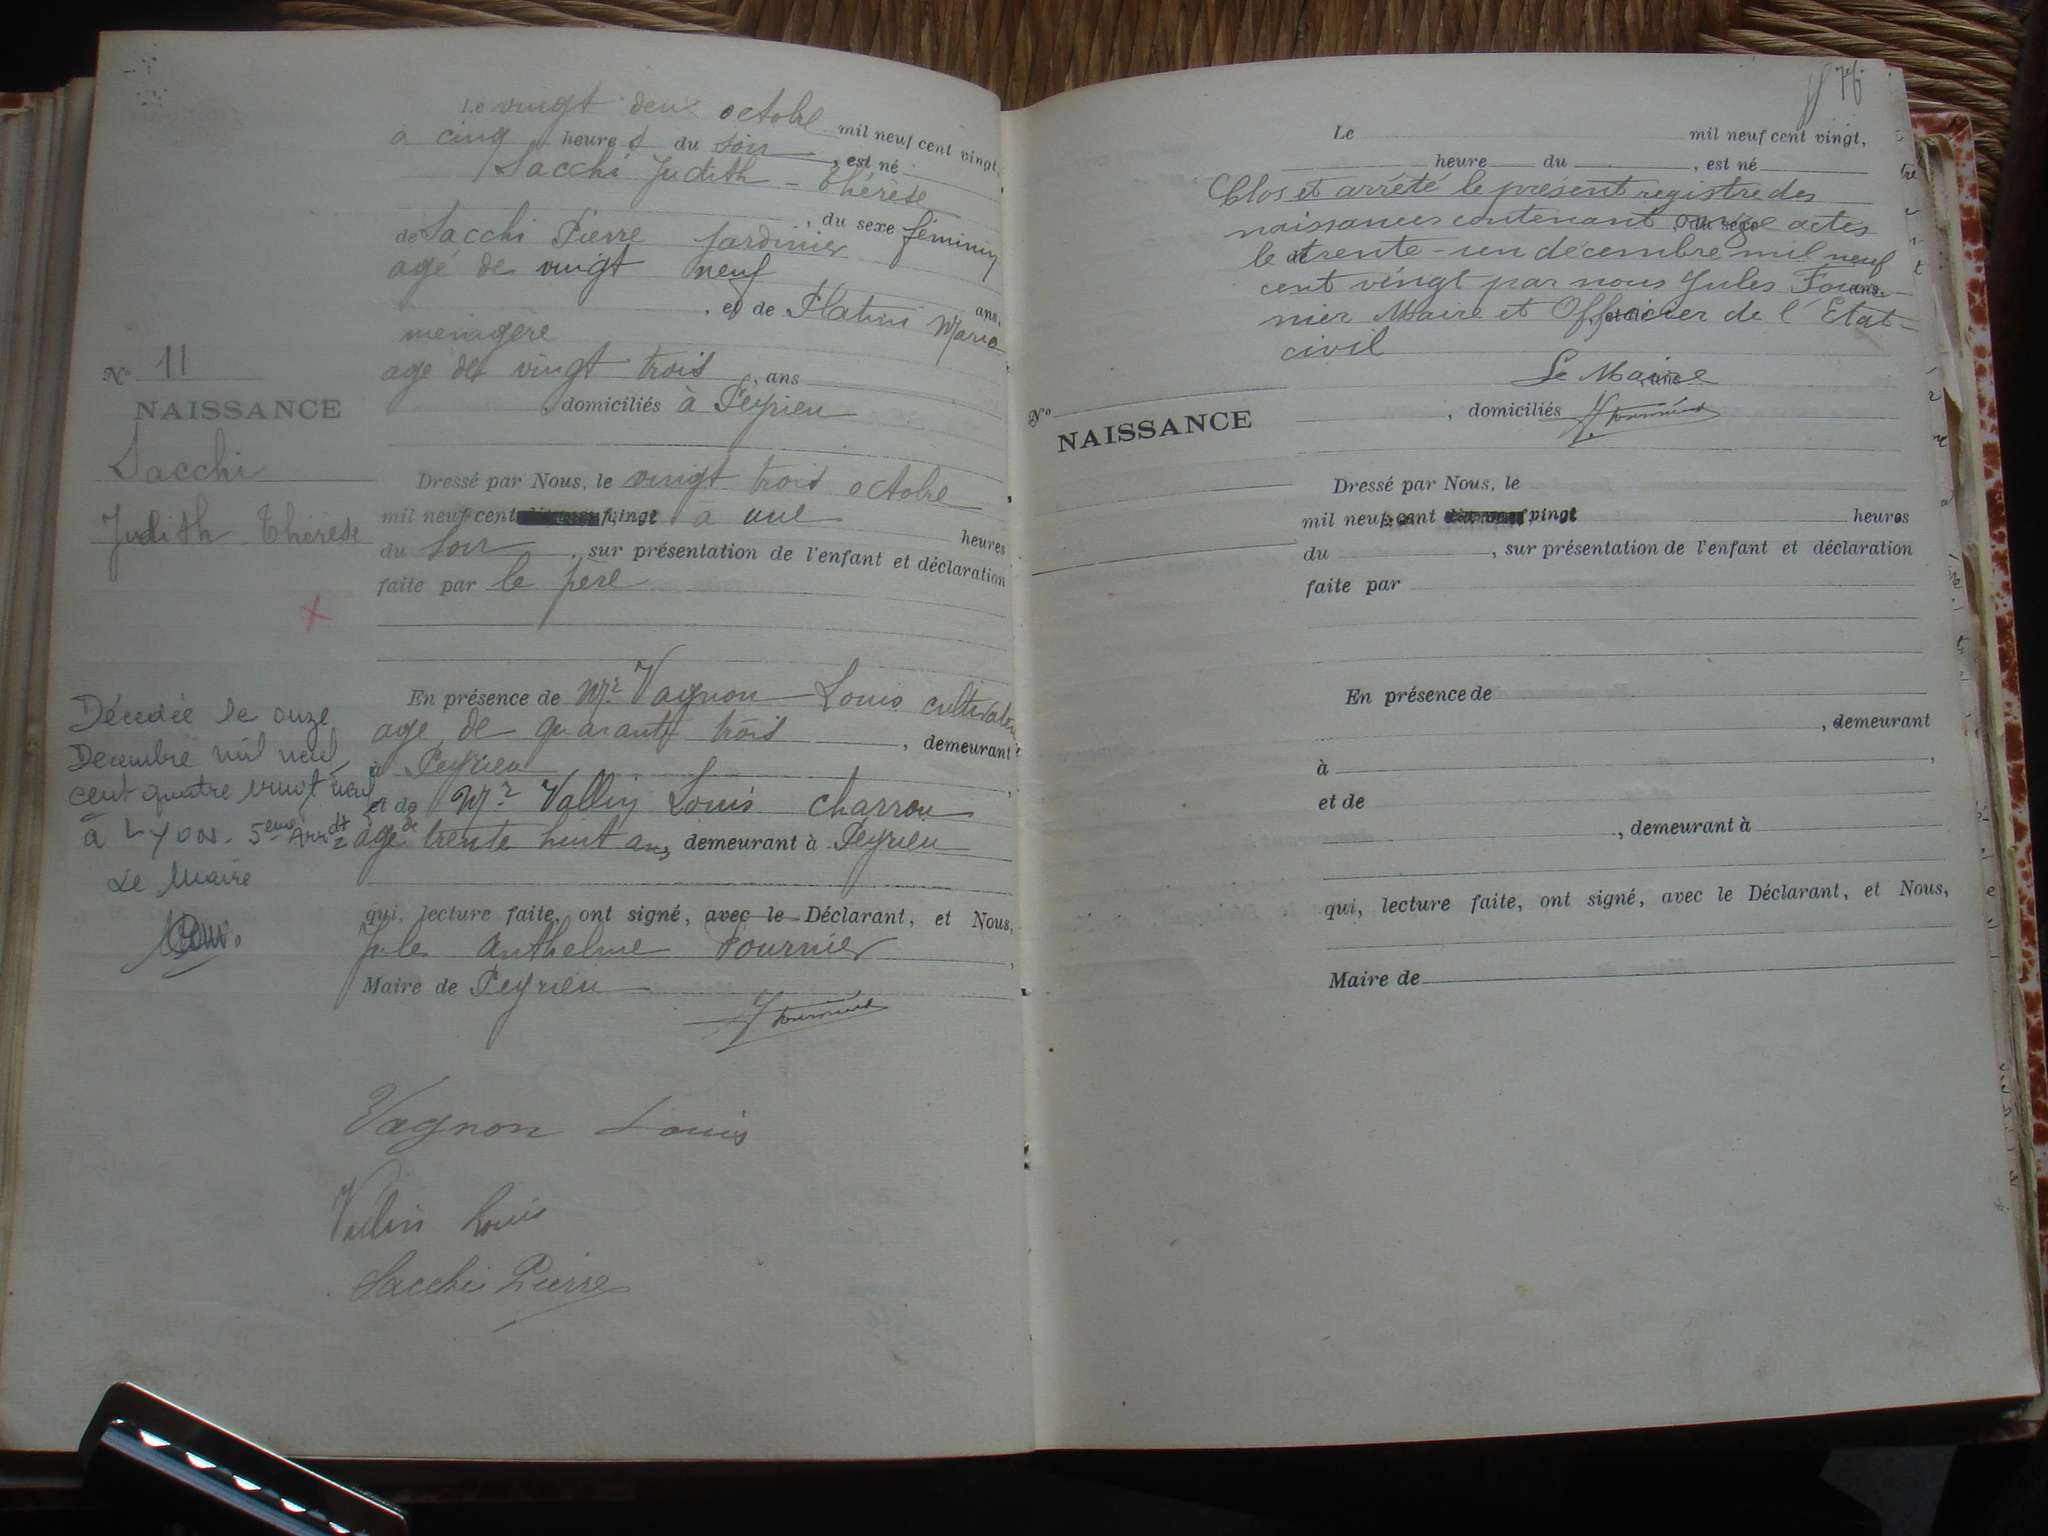 Le vingt deux octobre mil neuf cent vingt,
à cinq heures du soir, est né
Sacchi Judith - Thérèse
, du sexe féminin
de Sacchi Pierre jardinier
agé de vingt neuf ans,
et de Platini Marie
ménagère
agé de vingt trois, ans
domiciliés à Peyrieu
N° 11
NAISSANCE
Sacchi
Judith Thérèse
Dressé par Nous, le vingt trois octobre
mil neuf cent vingt à une heures
du soir, sur présentation de l'enfant et déclaration
faite par le père
En présence de Mr Vagnon Louis cultivateur
age de quarante trois, demeurant
à Peyrieu,
et de Mr Vallin Louis charron
age de trente huit ans demeurant à Peyrieu
qui, lecture faite, ont signé, avec le Déclarant, et Nous,
Jules Anthelme Fournier,
Maire de Peyrieu
J Fournier
Décedée le onze
Decembre mil neuf
cent quatre vingt neuf
à Lyon - 5eme Arrdt
Le Maire
Vagnon Louis
Vallin Louis
Sacchi Pierre
76
Le mil neuf cent vingt,
heure du , est né
Clos et arrêté le présent registre des
naissances contenant onze actes
le trente-un décembre mil neuf
cent vingt par nous Jules Four-
nier Maire et Officier de l'Etat-
civil
Le Maire
J. Fournier
N°
NAISSANCE
, domiciliés
Dressé par Nous, le
mil neuf cent vingt heures
du , sur présentation de l'enfant et déclaration
faite par
En présence de
, demeurant
à ,
et de
, demeurant à
qui, lecture faite, ont signé, avec le Déclarant, et Nous,
Maire de